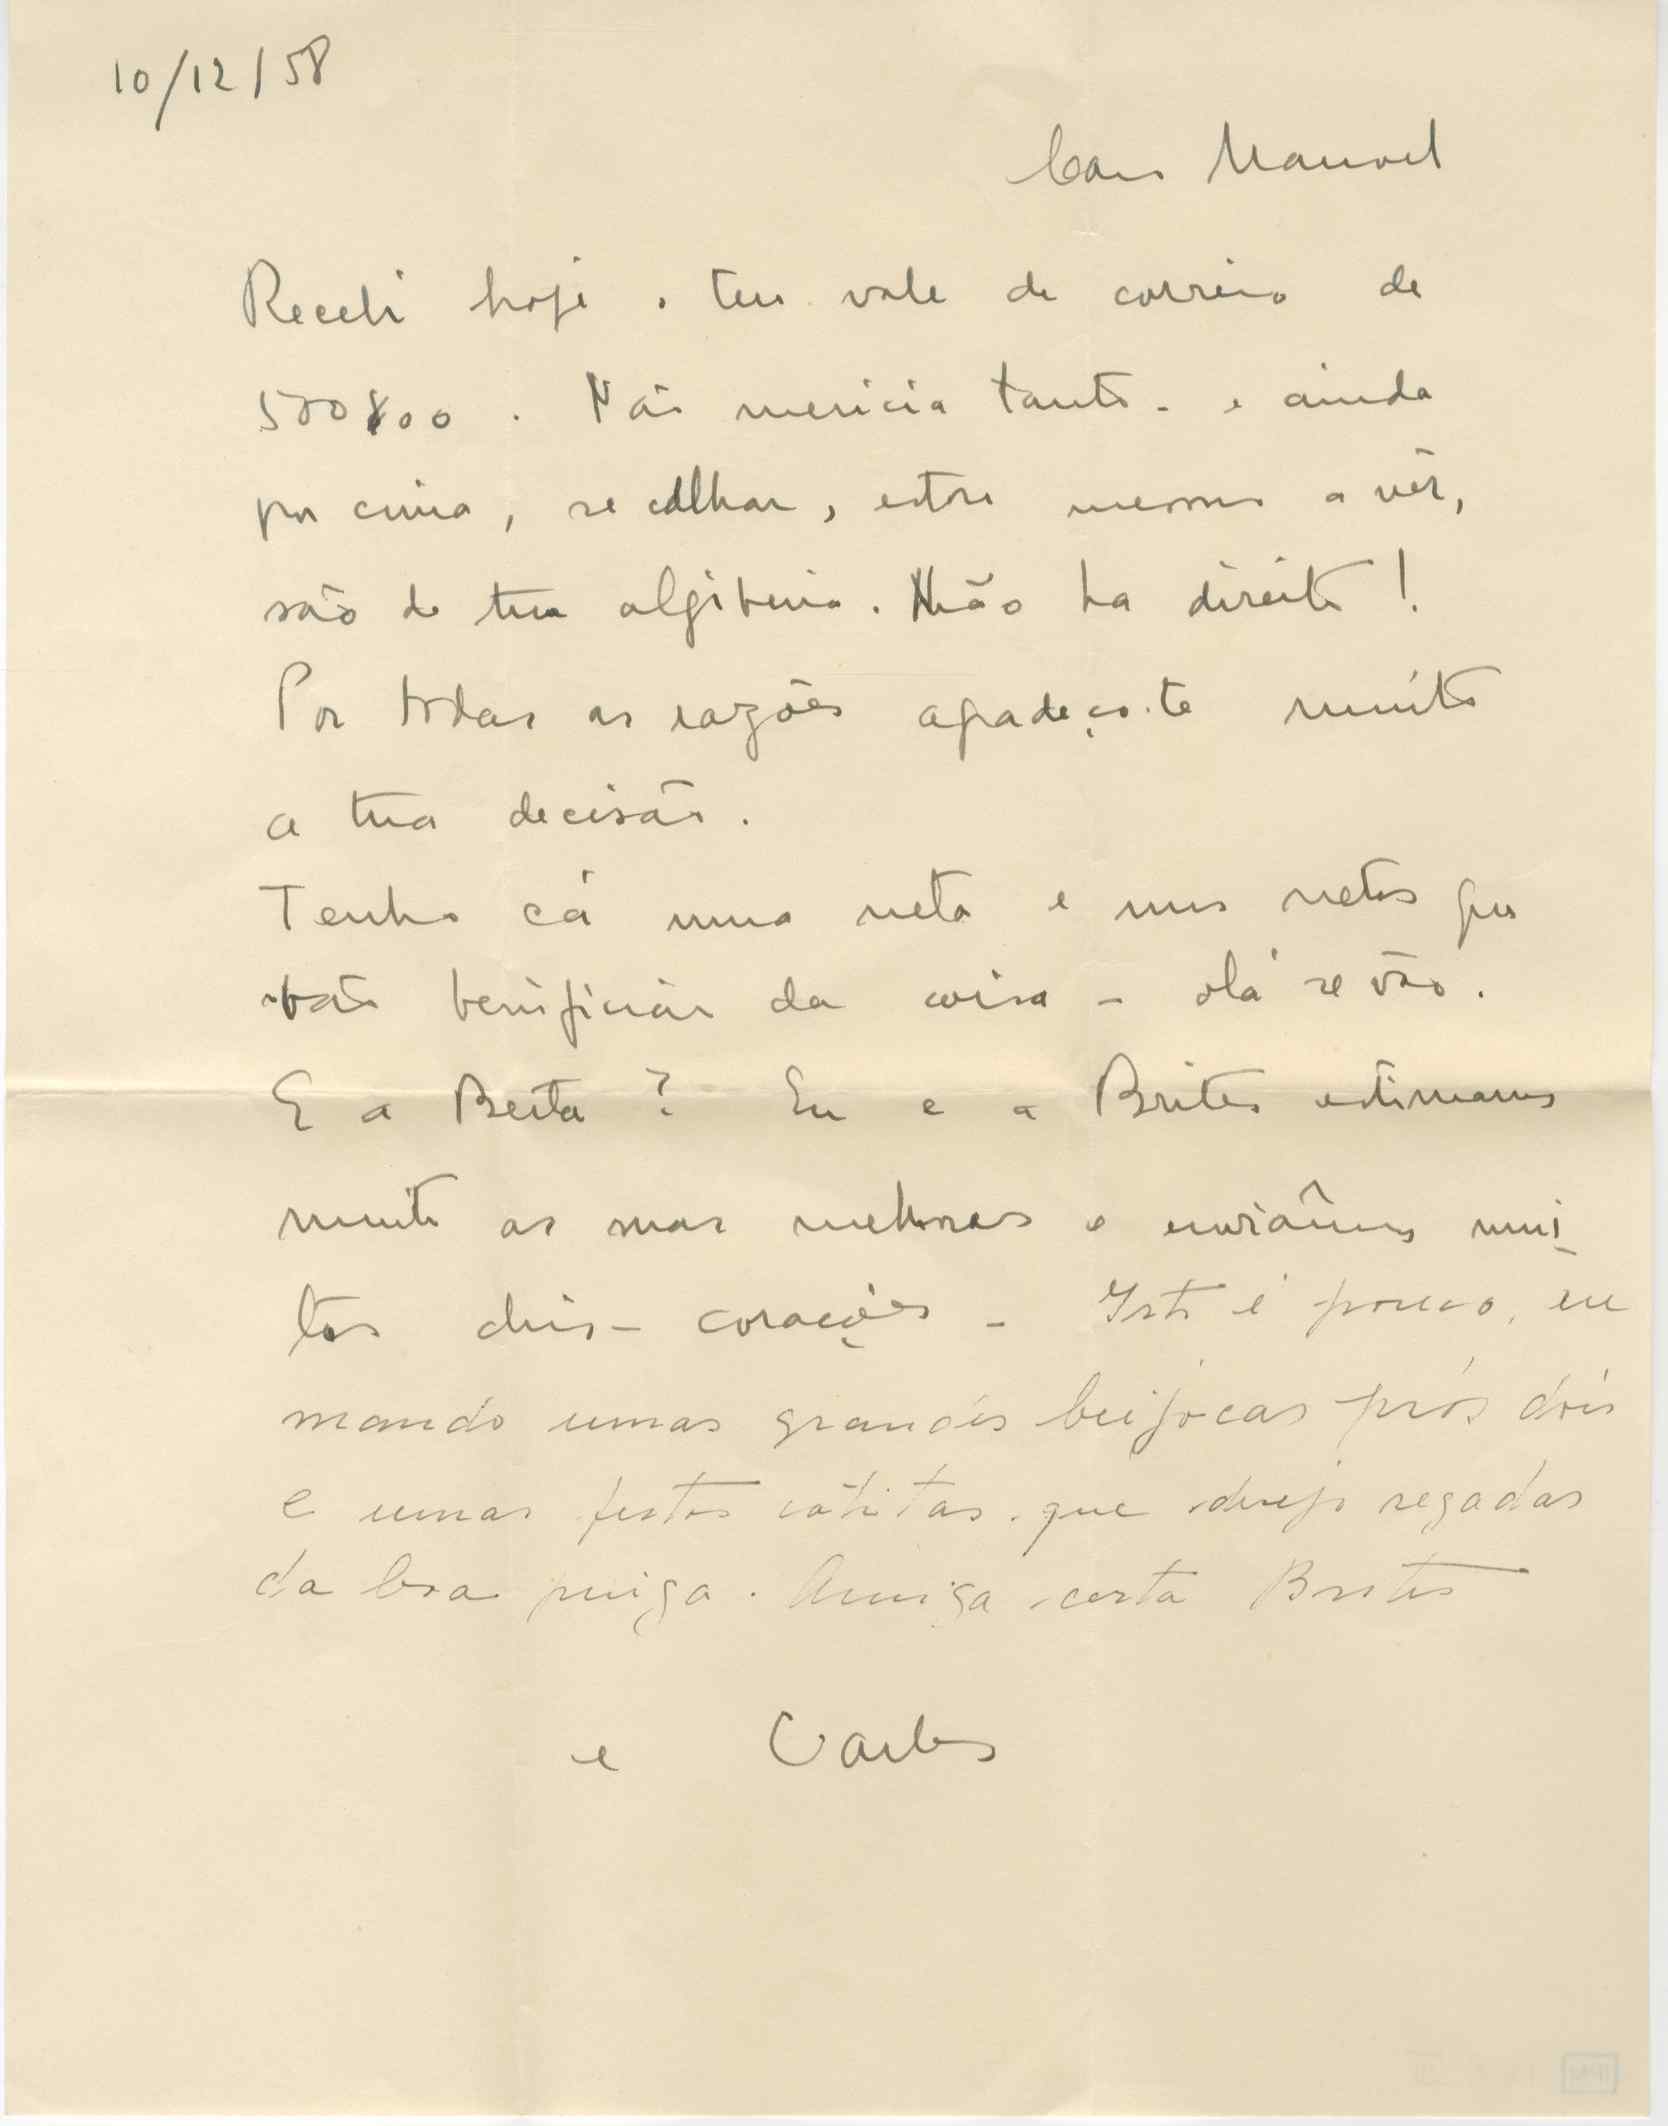 10/12/58
Caro Manuel
Recebi hoje o teu vale de correio de
500$00. Não merecia tanto - e ainda
por cima, se calhar, estou mesmo a vêr,
são da tua algibeira. Não ha direito!
Por todas as razões agradeço-te muito
a tua decisão.
Tenho cá uma neta e uns netos que
vão beneficiar da coisa - olá se vão.
E a Berta? Eu e a Brites estimamos
muito as suas melhoras e enviâmos mui-
tos chis-corações - Isto é pouco, eu
mando umas grandes beijocas prós dois
e umas festas catitas que desejo regadas
da boa pinga. Amiga certa Brites
e Carlos